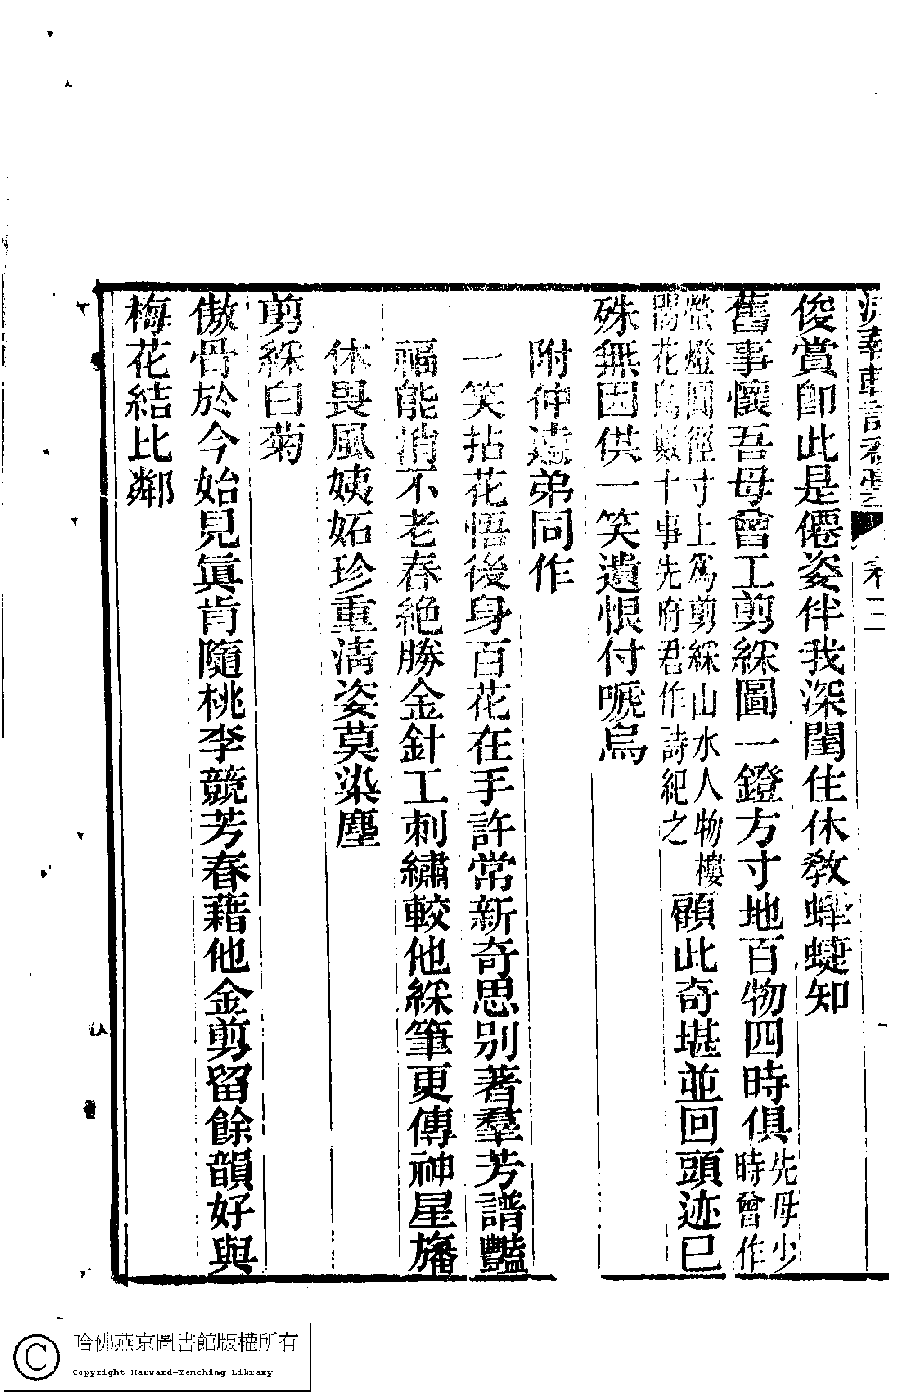 俊賞卽此是僊姿伴我深閨住休敎蜂蜨知
舊事懷吾母曾工剪綵圖一鐙方寸地百物四時俱先母少
時曾作
燈圓徑寸上爲剪綵山水人物樓
閣花鳥數十事先府君作詩紀之顧此奇堪並回頭迹已
殊無因供一笑遺恨付嗁烏
附仲遠弟同作
一笑拈花悟後身百花在手許常新奇思别著羣芳譜豔
福能消不老春絶勝金針工刺繡較他綵筆更傳神星旛
休畏風姨妬珍重清姿莫染塵
剪綵白菊
傲骨於今始見眞肯隨桃李競芳春藉他金剪留餘韻好與
梅花結比鄰
哈佛燕京圖書館版權所有
Copyright Harvard-Yenching Library